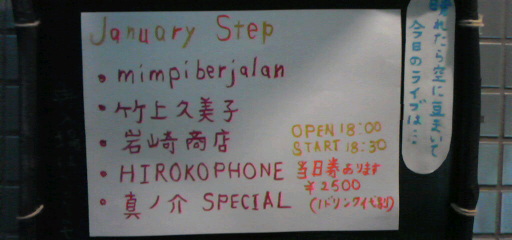 晴れたら空に豆まいて
今日のライブは…
January Step
• mimpiberjalan
• 竹上久美子
• 岩崎商店
• HIROKOPHONE
• 真ノ介 SPECIAL
OPEN 18:00
START 18:30
当日券あります
¥2500
(1ドリンク代別)